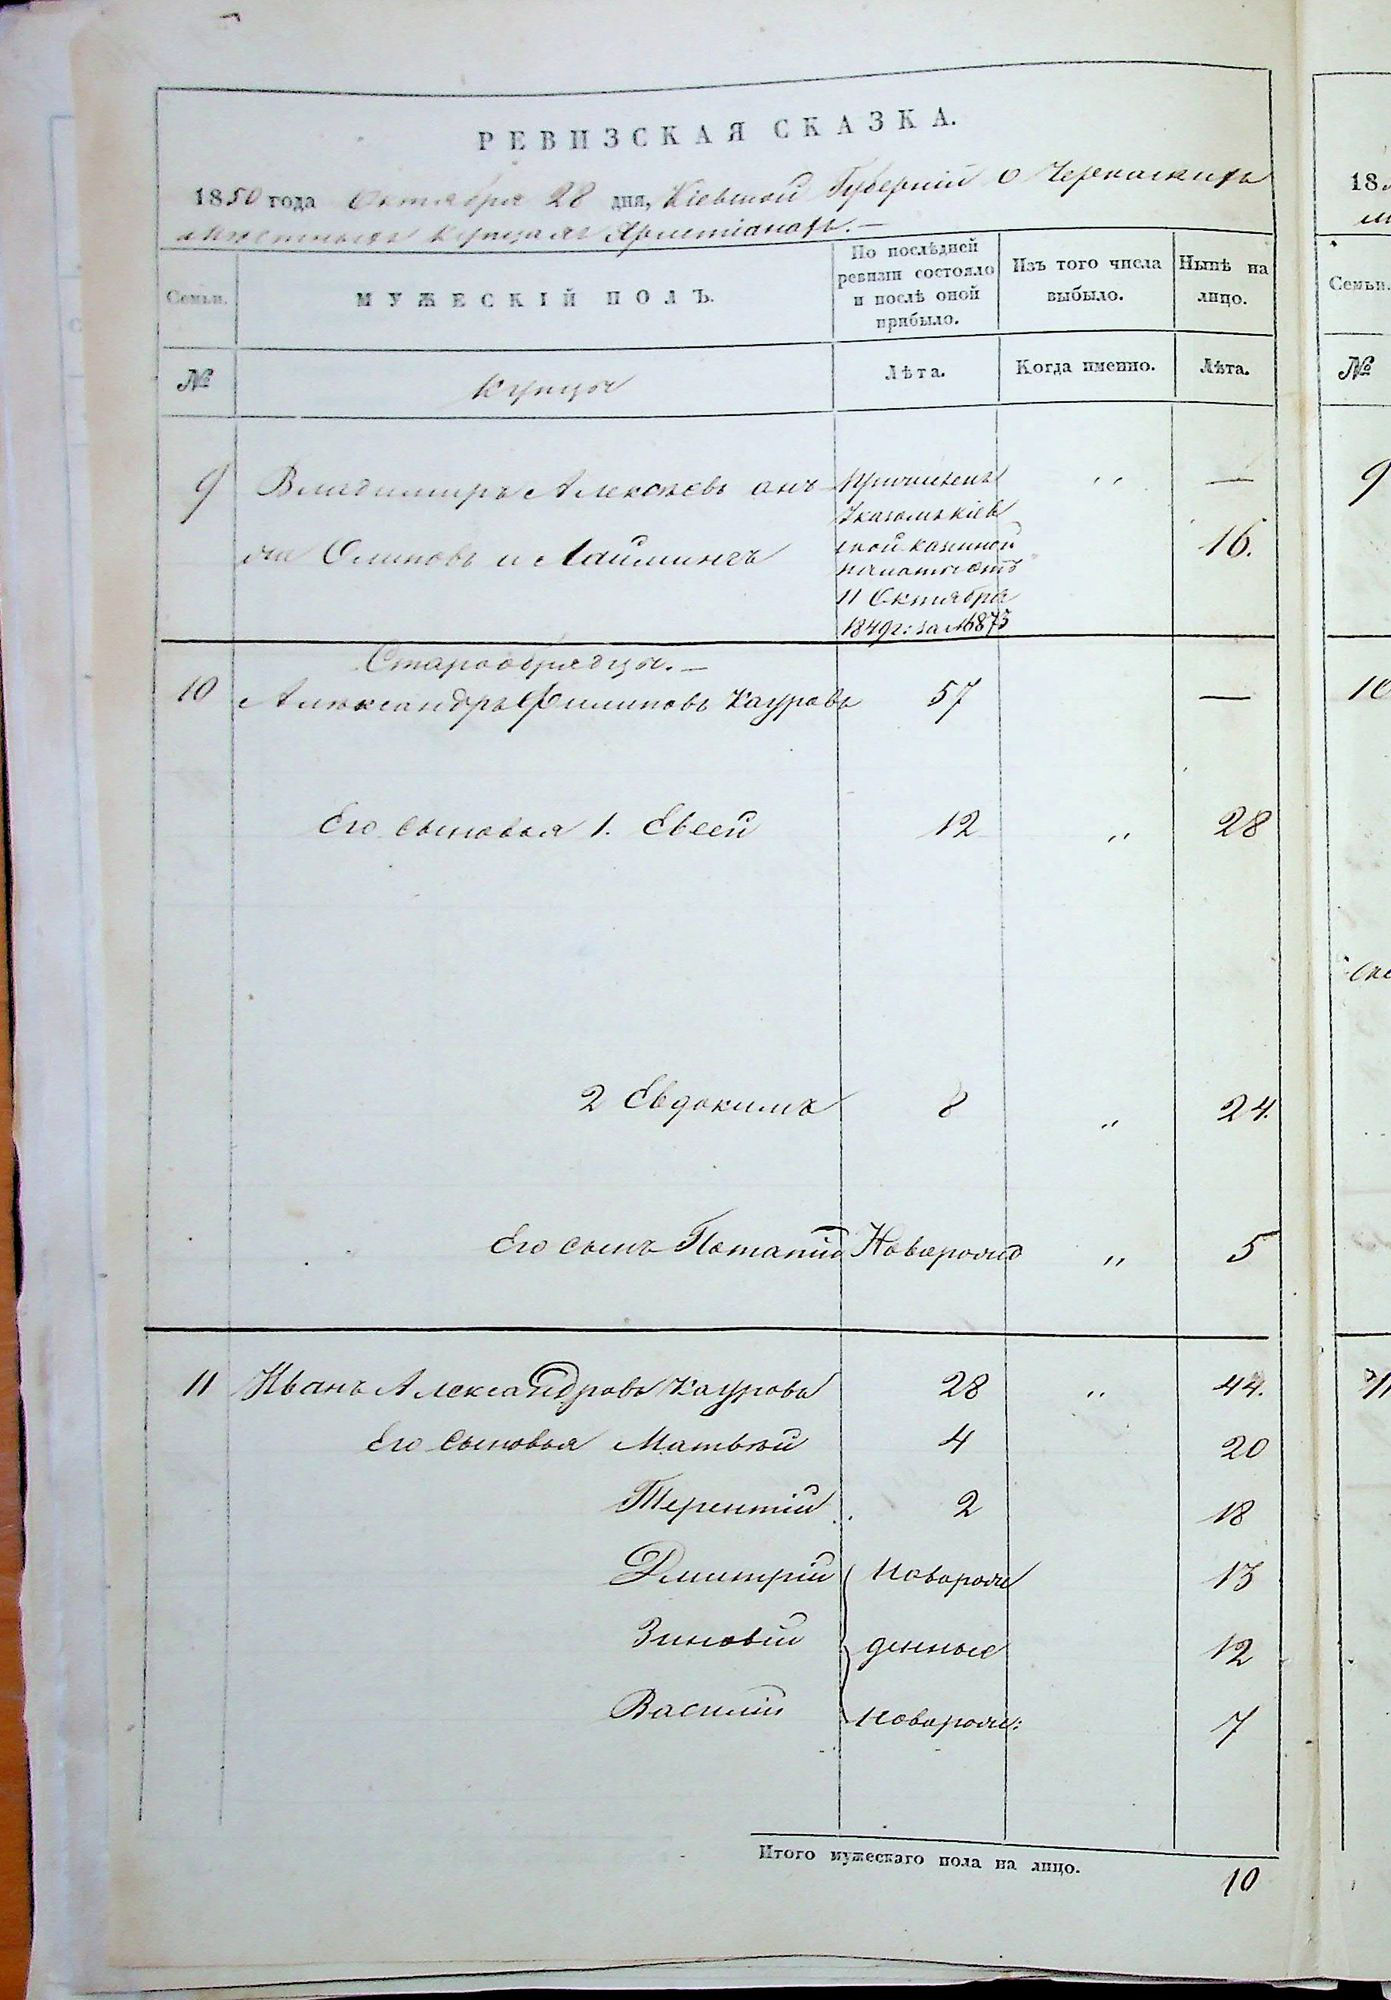 РЕВИЗСКАЯ СКАЗКА.
1850 года Октября 28 дня, Кіевской Губерніи о Черкаскихъ
мѣстныхъ купцахъ Христіанахъ.—
Семьи. МУЖЕСКІЙ ПОЛЪ. По послѣдней ревизіи состояло и послѣ оной прибыло. Изъ того числа выбыло. Нынѣ на лицо.
№ Купцы Лѣта. Когда именно. Лѣта.
9 Владимиръ Алексѣевъ онъ Причисленъ „ —
же Олиповъ и Лайшингъ 16.
Указомъ Кіев
ской казеной
палаты отъ
11 Октября
1849г: за №6875
Старообрядцы.—
10 Александръ Филиповъ Кауровъ 57 —
Его сыновья 1. Евсей 12 „ 28
2 Евдокимъ 8 „ 24.
Его сынъ Потапій Новорожд „ 5
11 Иванъ Александровъ Кауровъ 28 „ 44.
Его сыновья Матвѣй 4 20
Терентій 2 18
Дмитрій Новорож 13
Зиновій денные 12
Василій Новорож: 7
Итого мужескаго пола на лицо. 10
18
Семьи.
№
9
10
11